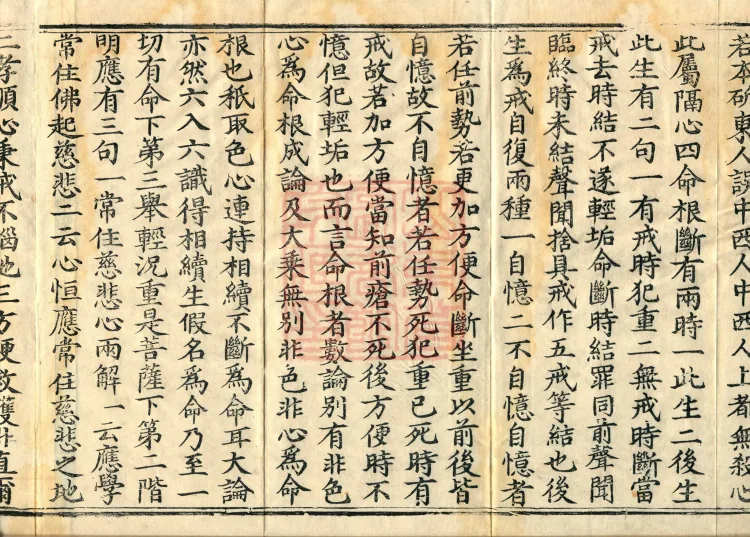 若本斫東人誤中西人中西人上者無殺心
此屬隔心四命根斷有兩時一此生二後生
此生有二句一有戒時犯重二無戒時斷當
戒去時結不遂輕垢命斷時結罪同前聲聞
臨終時未結聲聞捨具戒作五戒等結也後
生為戒自復兩種一自憶二不自憶自憶者
若任前勢若更加方便命斷坐重以前後皆
自憶故不自憶者若任勢死犯重已死時有
戒故若加方便當知前瘡不死後方便時不
憶但犯輕垢也而言命根者數論別有非色
心為命根成論及大乘無別非色非心為命
根也秖取色心連持相續不斷為命耳大論
亦然六入六識得相續生假名為命乃至一
切有命下第三舉輕況重是菩薩下第二階
明應有三句一常住慈悲心兩解一云應學
常住佛起慈悲二云心恒應常住慈悲之地
二孝順心秉戒不惱他三方便救護非直爾